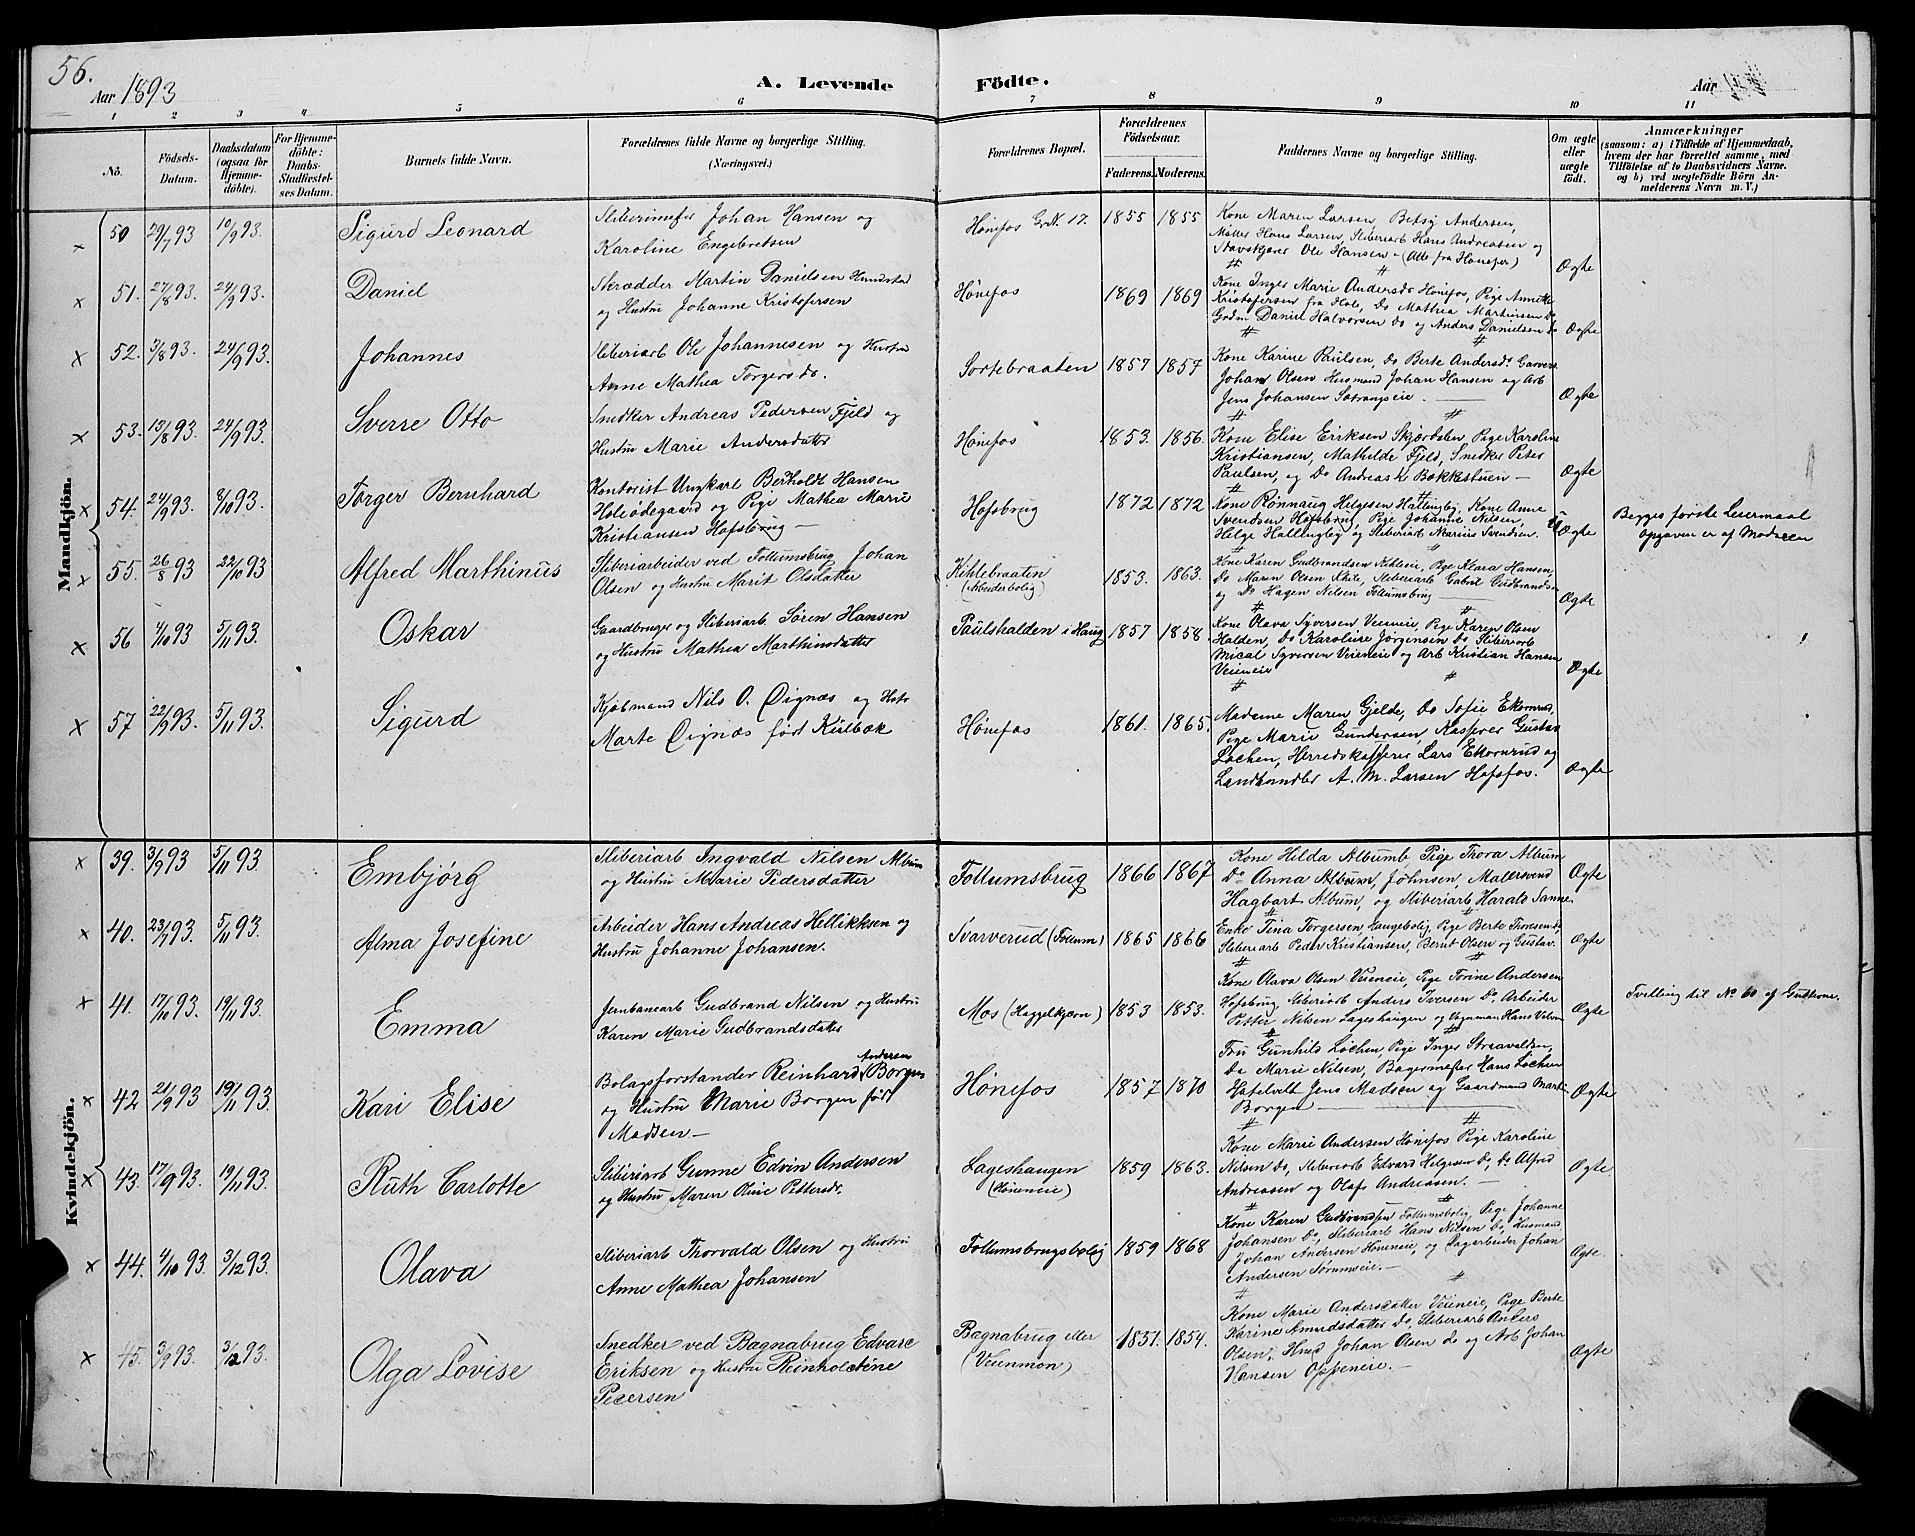 56.
Aar 1893
A. Levende
Födte.
Aar
1 2 3 4 5 6 7 8 9 10 11
No.
Födsels-Datum.
Daabsdatum (ogsaa for Hjemme-döbte).
For Hjemme-döbte: Daabs-Stadfæstel-ses Datum.
Barnets fulde Navn.
Forældrenes fulde Navne og borgerlige Stilling.
(Næringsvei.)
Forældrenes Bopæl.
Forældrenes Födselsaar.
Faderens. Moderens.
Faddernes Navne og borgerlige Stilling.
Om ægte eller uægte födt.
Anmærkninger
(saasom: a) i Tilfælde af Hjemmedaab,
hvem der har forrettet samme, med
Tilföielse af to Daabsvidners Navne.
og b) ved uægtefödte Börn An-
melderens Navn m. V.)
Mandkjön.
x 50 29/7 93 10/9 93. Sigurd Leonard
Sliberimester Johan Hansen og
Karoline Engebretsen
Hönefos G.N. 17. 1855 1855
Kone Maren Larsen, Betsy Andersen,
Möller Hans Larsen, Sliberiarb Hans Andreasen og
Ole Hansen - (Alle fra Hönefos)
Ægte
x 51. 27/8 93. 24/9 93. Daniel
Skrædder Martin Danielsen Hundstad
og Hustru Johanne Kristofersen
Hönefos 1869 1869
Kone Inger Marie Andersds Hönefos, Pige Annette
Kristofersen fra Hole, Do Mathea Martinsen Do
Grdm Daniel Halvorsen Do og Anders Danielsen Do
Ægte
x 52. 3/8 93. 24/9 93. Johannes
Sliberiarb Ole Johannesen og Hustru
Anne Mathea Torgersdr.
Sortebraaten 1857 1857
Kone Karine Paulsen, Do Berte Andersdr Garver
Johan Olsen Husmand Johan Hansen og Arb
Jens Johansen
Ægte
x 53. 13/8 93. 24/9 93. Sverre Otto
Snedker Andreas Pedersen Fjeld og
Hustru Marie Andersdatter
Hönefos 1853. 1856.
Kone Elise Eriksen Skjærdalen, Pige Karoline
Kristiansen, Mathilde Fjeld, Snedker Peter
Paulsen, og Do Andreas Bakkestuen —
Ægte
x 54. 24/9 93. 8/10 93. Torger Bernhard
Kontorist Ungkarl Berholdt Hansen
Holeödegaard og Pige Mathea Marie
Kristiansen Hofsbrug —
Hofsbrug 1872 1872
Kone Rönnaug Helgesen Hallingby, Kone Anne
Svendsen Hofsbrug, Pige Johanne Nilsen,
Helge Hallingby og Sliberiarb Marius Svendsen.
uÆgte
Begges förste Leiermaal
Opgaven er af Moderen
x 55. 26/8 93 22/10 93 Alfred Marthinus
Sliberiarbeider ved Follumsbrug Johan
Olsen og Hustru Marit Olsdatter
Kihlebraaten
(Arbeiderbolig)
1853. 1863.
Kone Karen Gudbrandsen Kihleie, Pige Klara Hansen,
Do Maren Olsen Kihle, Sliberiarb Gabriel Gudbrandsen
og Do Hagen Nilsen Follumsbrug
Ægte
x 56 4/10 93 5/11 93. Oskar
Gaardbruger og Sliberiarb Sören Hansen
og Hustru Mathea Marthinsdatter
Paulshalden i Haug 1857 1858.
Kone Olava Syversen Veieneie, Pige Karen Olsen
Halden, Do Karoline Jörgensen Do Sliberiarb
Mical Syversen Veieneie og Arb Kristian Hansen
Veieneie
Ægte
x 57 22/9 93. 5/11 93. Sigurd
Kjöbmand Nils O. Öignæs og Hstr
Marte Öignæs födt Kirlbæk
Hönefos 1861. 1865.
Madame Maren Gjelde, Do Sofie Ekornrud,
Pige Marie Gundersen, Kasserer Gustav
Lochen, Herredskasserer Lars Ekornrud og
Landhandler A. M. Larsen Hofsfos.
Ægte
Kvindekjön.
x 39. 3/9 93 5/11 93 Embjörg
Sliberiarb Ingvald Nilsen Album
og Hustru Marie Pedersdatter
Follumsbrug 1866 1867
Kone Hilda Albumb Pige Thora Album
Do Anna Album, Johnsen, Möllersvend
Hagbart Album, og Sliberiarb Harald Sanne.
Ægte
x 40. 23/7 93. 5/11 93. Alma Josefine
Arbeider Hans Andreas Hellikksen og
Hustru Johanne Johansen.
Svarverud (Follum) 1865 1866
Enke Tina Torgersen Haugebolig, Pige Berte Thoresen Do
Sliberiarb Peder Kristiansen, Bernt Olsen og Gustav.
Ægte
x 41. 17/10 93. 19/11 93. Emma
Jernbanearb Gudbrand Nilsen og Hustru
Karen Marie Gudbrandsdatter
Mos (Heggelkjern) 1853 1853.
Kone Olava Olsen Veieneie, Pige Torine Andersen
Hofsbrug Sliberiarb Anders Iversen Do Arbeider
Petter Nilsen Lageshaugen og Vognmand Hans
Ægte
Tvilling til No 60 af Guttene.
x 42 21/9 93 19/11 93. Kari Elise
Bolagsforstander Reinhard Andersen Borgen
og Hustru Marie Borgen födt
Madsen —
Hönefos 1857 1870
Fru Gunhild Lochen, Pige Inger
Do Marie Nilsen, Bagermester Hans Lochen
Jens Madsen og Gaardmand
Borgen
Ægte
x 43. 17/9 93. 19/11 93. Ruth Carlotte
Sliberiarb Gunne Edvin Andersen
og Hustru Maren Oline Pettersdr.
Lageshaugen
(Höneneie)
1859 1863.
Kone Marie Andersen Hönefos Pige Karoline
Nilsen Do, Sliberiarb Edvard Helgesen Do, Do Alfred
Andreasen og Olaf Andreasen. —
Ægte
x 44. 4/10 93. 3/12 93. Olava
Sliberiarb Thorvald Olsen og Hustru
Anne Mathea Johansen
Follumsbrugsbolig 1859 1868
Kone Karen Gudbrandsen Follumsbolig, Pige Johanne
Johansen Do, Sliberiarb Hans Nilsen Do, Husmand
Johan Andersen Höneneie, og Dagarbeider Johan
Andersen Sörumseie. —
Ægte
x 45. 3/9 93. 3/12 93. Olga Lovise
Snedker ved Bagnabrug Edvard
Eriksen og Hustru Reinholdine
Pedersen
Bagnabrug eller
(Veienmon)
1851. 1854.
Kone Marie Andersdatter Veieneie, Pige Berte
Karine Amundsdatter Do, Sliberiarb Anders
Olsen, Husd Johan Olsen do og Arb Johan
Hansen Oppeneie. —
Ægte